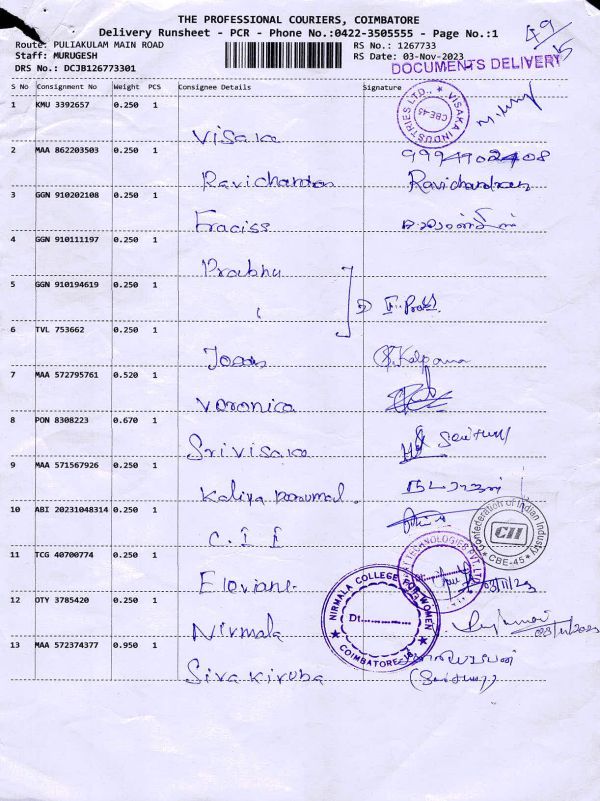 THE PROFESSIONAL COURIERS, COIMBATORE
Delivery Runsheet - PCR - Phone No.:0422-3505555 - Page No.:1
49
Route: PULIAKULAM MAIN ROAD
RS No.: 1267733
Staff: MURUGESH
RS Date: 03-Nov-2023
DRS No.: DCJB126773301
DOCUMENTS DELIVERY
S No Consignment No Weight PCS Consignee Details Signature
1 KMU 3392657 0.250 1
VISAKA INDUSTRIES LTD., CBE-45
Visaka
2 MAA 862203503 0.250 1
9994902408
Ravichandran Ravichandran
3 GGN 910202108 0.250 1
Fraciss
4 GGN 910111197 0.250 1
Prabhu
5 GGN 910194619 0.250 1
6 TVL 753662 0.250 1
Kalpana
7 MAA 572795761 0.520 1
Veronica
8 PON 8308223 0.670 1
Srivisaka
9 MAA 571567926 0.250 1
Kaliya Perumal.
10 ABI 20231048314 0.250 1
Confederation of Indian Industry CII CBE-45
C. I I
11 TCG 40700774 0.250 1
TECHNOLOGIES PVT. LTD
03/11/23
12 OTY 3785420 0.250 1
NIRMALA COLLEGE FOR WOMEN
Dt.
COIMBATORE-18
Nirmala
03/11/2023
13 MAA 572374377 0.950 1
Siva Kiruba